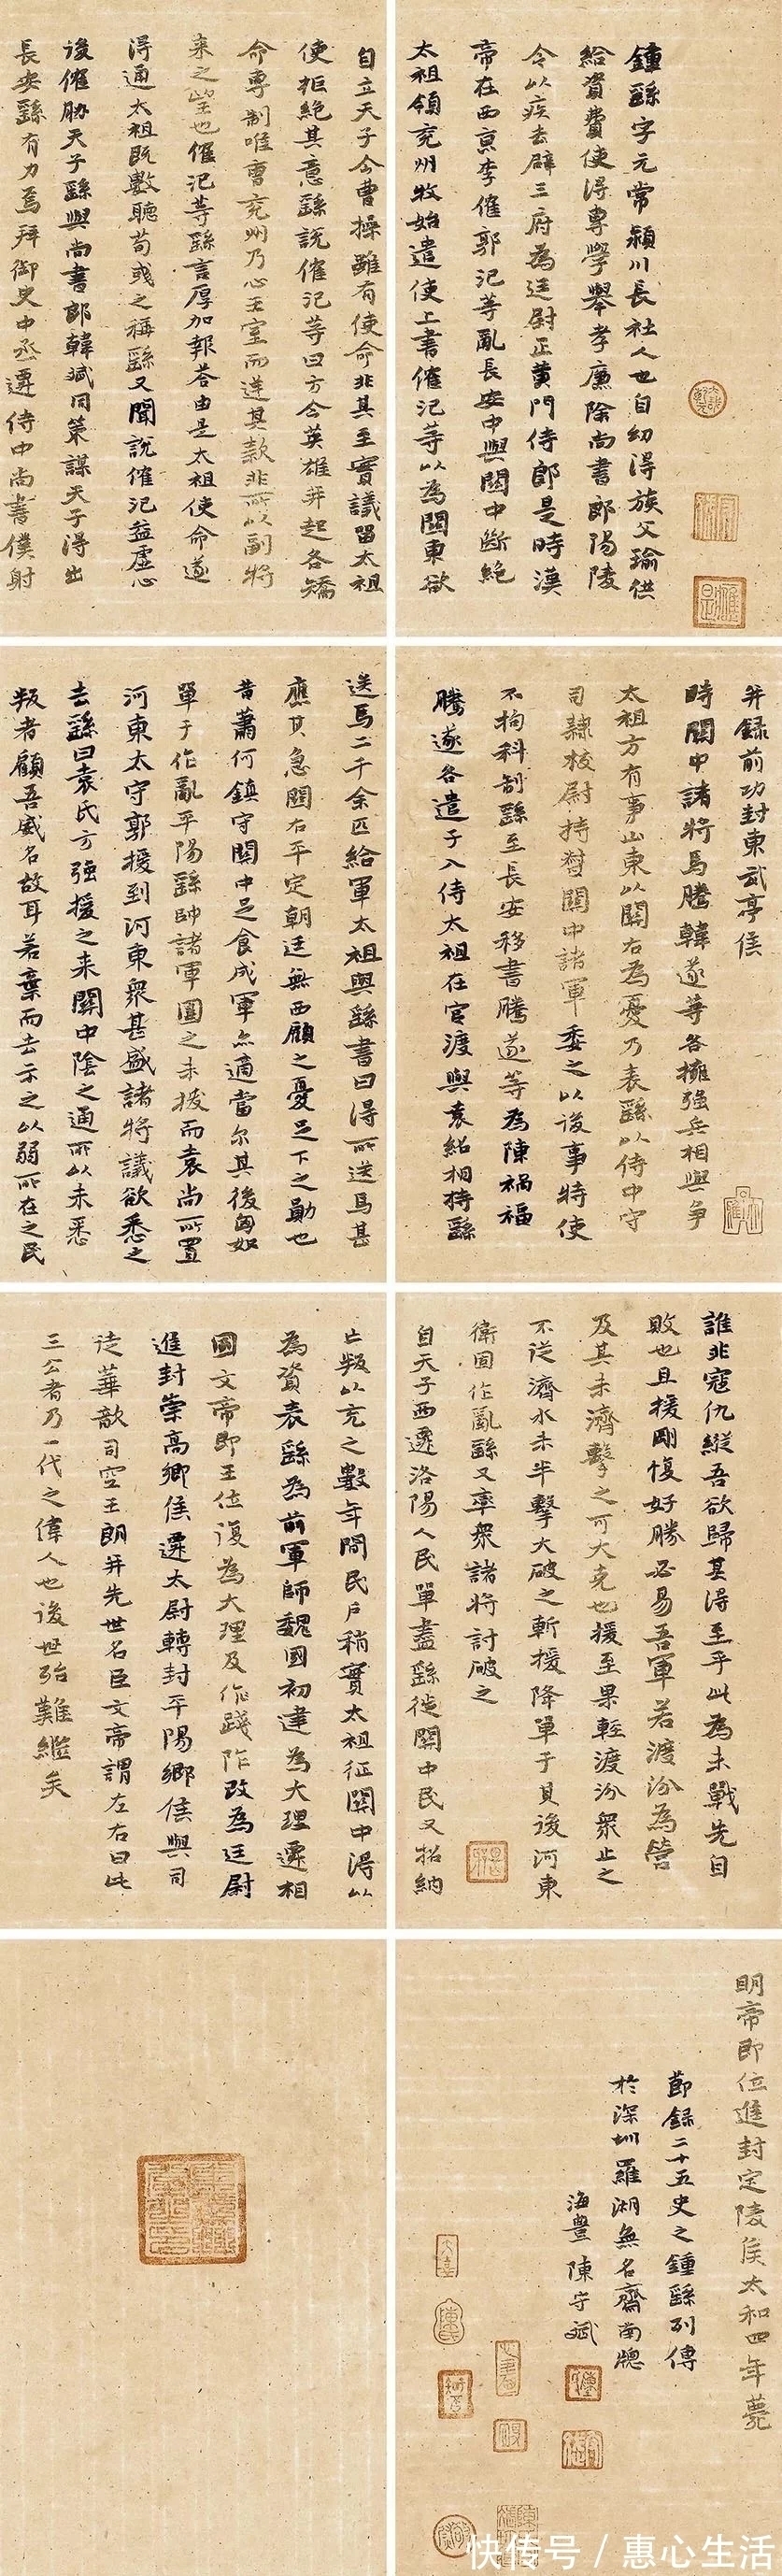 鍾繇字元常潁川長社人也自幼得族父瑜供
給資費使得專學舉孝廉除尚書郎陽陵
令以疾去辟三府為廷尉正黃門侍郎是時漢
帝在西京李傕郭汜等亂長安中與關中斷絶
太祖領兗州牧始遣使上書傕汜等以為關東欲
自立天子今曹操雖有使命非其至實議留太祖
使拒絶其意繇説傕汜等曰方今英雄并起各矯
命專制唯曹兗州乃心王室而逆其款非所以副將
來之望也傕汜等繇言厚加報荅由是太祖使命遂
得通太祖既數聽荀彧之稱繇又聞説傕汜益虛心
後傕脅天子繇與尚書郎韓斌同策謀天子得出
長安繇有力焉拜御史中丞遷侍中尚書僕射
并録前功封東武亭侯
時關中諸將馬騰韓遂等各擁強兵相與爭
太祖方有事山東以關右為憂乃表繇以侍中守
司隸校尉持督關中諸軍委之以後事特使
不拘科制繇至長安移書騰遂等為陳禍福
騰遂各遣子入侍太祖在官渡與袁紹相持繇
送馬二千余匹給軍太祖與繇書曰得所送馬甚
應其急關右平定朝廷無西顧之憂足下之勛也
昔蕭何鎮守關中足食成軍亦適當尔其後匈奴
單于作亂平陽繇帥諸軍圍之未拔而袁尚所置
河東太守郭援到河東衆甚盛諸將議欲悉之
去繇曰袁氏方強援之来關中陰之通所以未悉
叛者顧吾威名故耳若棄而去示之以弱所在之民
誰非寇仇縱吾欲歸其得至乎此為未戰先自
敗也且援剛愎好勝必易吾軍若渡汾為營
及其未濟擊之可大克也援至果輕渡汾衆止之
不從濟水未半擊大破之斬援降單于其後河東
衛固作亂繇又率衆諸將討破之
自天子西遷洛陽人民單盡繇徙關中民又招納
亡叛以充之數年間民户稍實太祖征關中得以
為資表繇為前軍師魏國初建為大理遷相
國文帝即王位復為大理及作踐阼改為廷尉
進封崇高鄉侯遷太尉轉封平陽鄉侯與司
徒華歆司空王朗并先世名臣文帝謂左右曰此
三公者乃一代之偉人也後世殆難繼矣
明帝即位進封定陵侯太和四年薨
節録二十五史之鍾繇列傳
於深圳羅湖無名齋南牕
海豐陳守斌
快传号 / 惠心生活